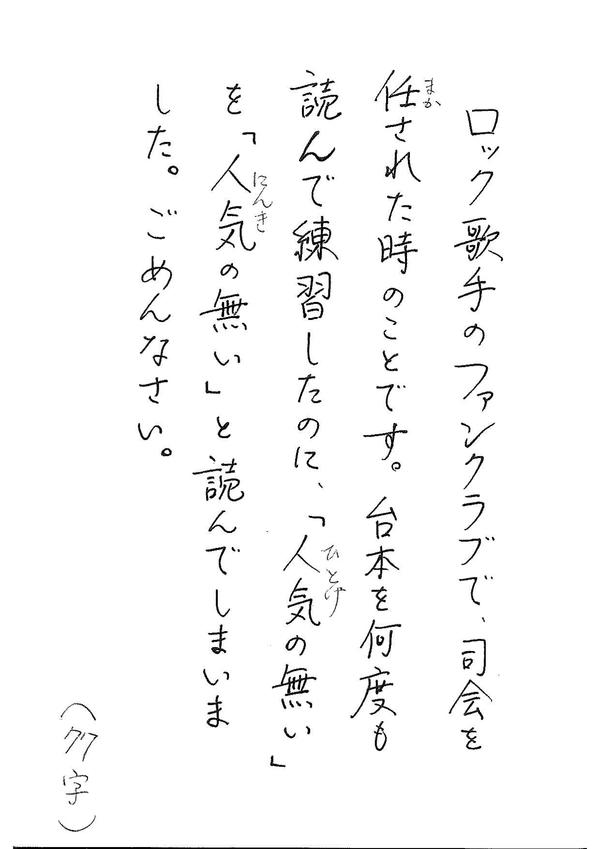 ロック歌手のファンクラブで、司会を
まか
任された時のことです。台本を何度も
ひとけ
読んで練習したのに、「人気の無い」
にんき
を「人気の無い」と読んでしまいま
した。ごめんなさい。
(字)